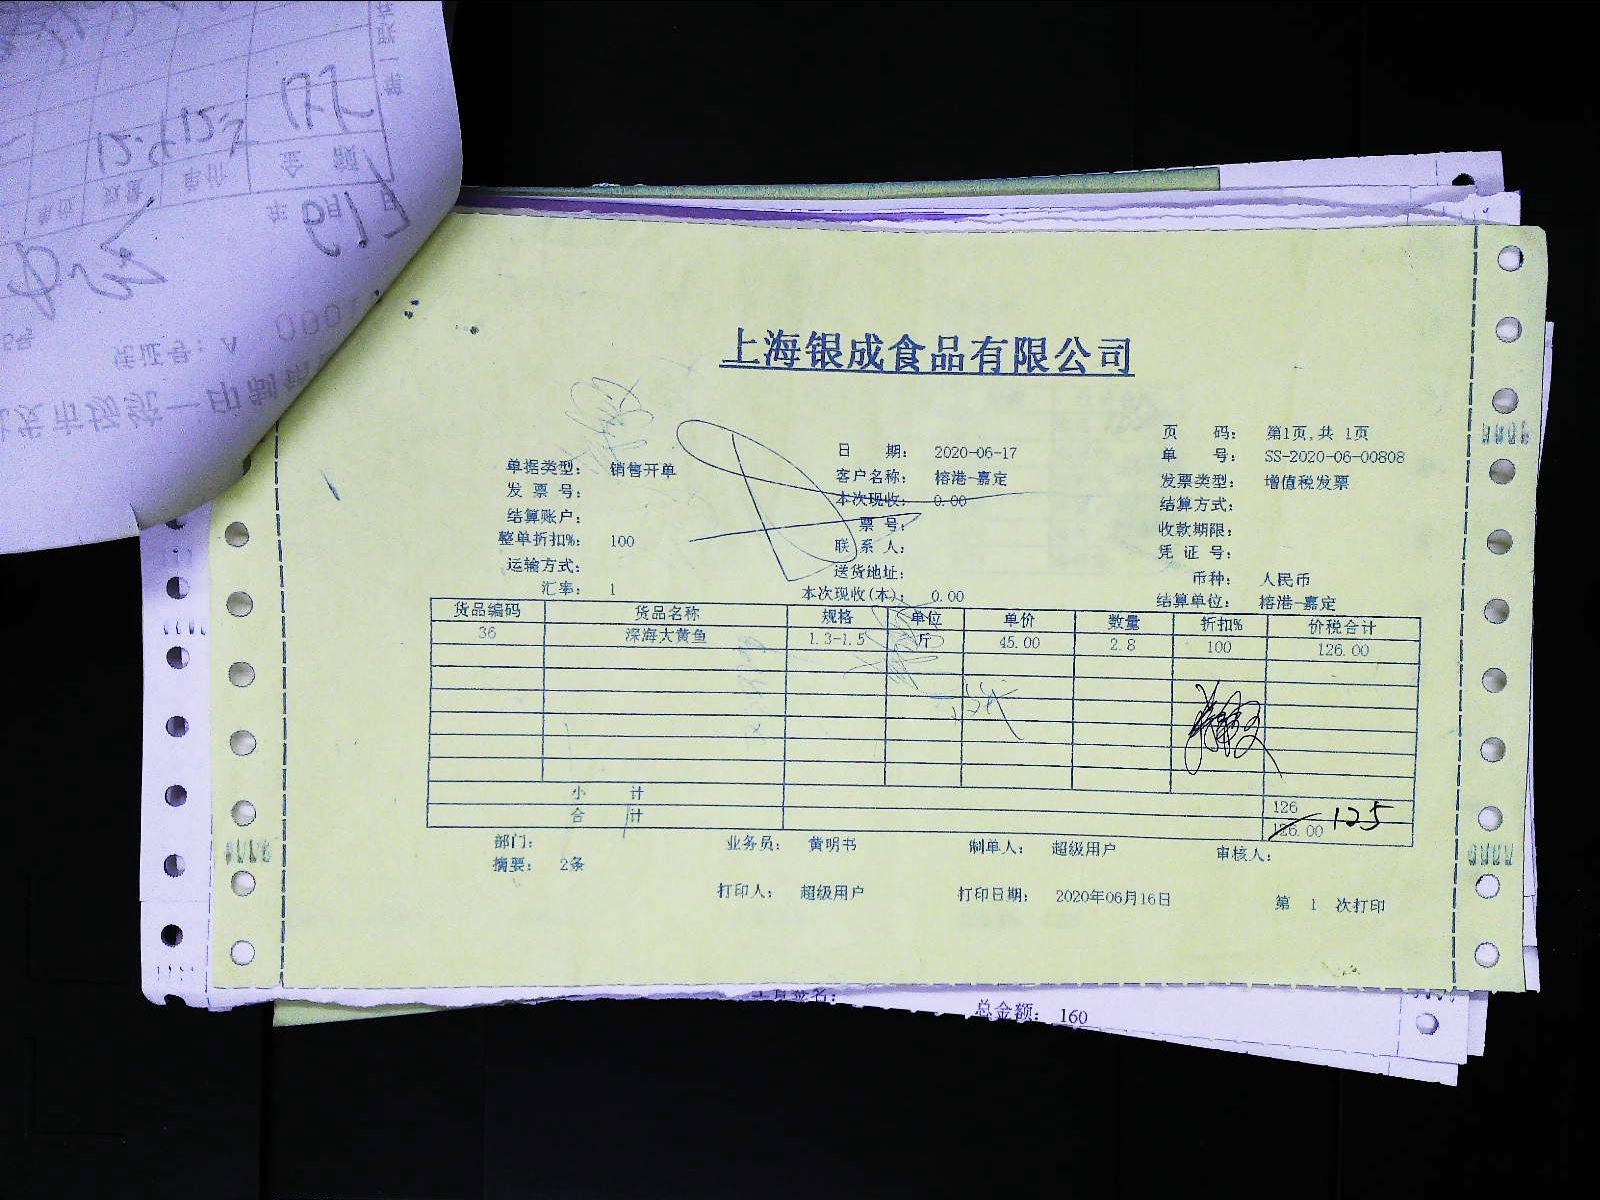 上海银成食品有限公司
页 码: 第1页,共 1页
日 期: 2020-06-17 单 号: SS-2020-06-00808
单据类型: 销售开单 客户名称: 榕港-嘉定 发票类型: 增值税发票
发 票 号: 本次现收: 0.00 结算方式:
结算账户: 票 号: 收款期限:
整单折扣%: 100 联 系 人: 凭 证 号:
运输方式: 送货地址: 币种: 人民币
汇率: 1 本次现收(本): 0.00 结算单位: 榕港-嘉定
货品编码 货品名称 规格 单位 单价 数量 折扣% 价税合计
36 深海大黄鱼 1.3-1.5 斤 45.00 2.8 100 126.00
小 计 126
合 计 126.00 125
部门: 业务员: 黄明书 制单人: 超级用户 审核人:
摘要: 2条
打印人: 超级用户 打印日期: 2020年06月16日 第 1 次打印
总金额: 160
凭证号: A 000
年 6月17日
数量 单价 金 额